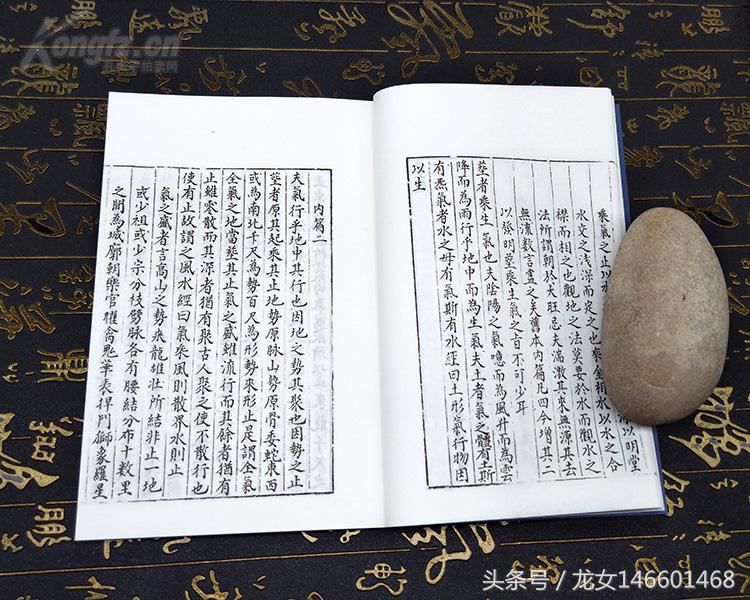 乘氣之止以水以明堂
水交之淺深而定之也乘金相水以水之合
襟而相之也觀地之法莫要於水而觀水之
法所謂朝於大旺忌夫湍激其來無源其去
無流數言盡之矣舊本內篇凡四今增其二
以發明葬乘生氣之旨不可少耳
葬者乘生氣也夫陰陽之氣噫而為風升而為雲
降而為雨行乎地中而為生氣夫土者氣之體有土斯
有炁氣者水之母有氣斯有水經曰土形氣行物因
以生
內篇二
夫氣行乎地中其行也因地之勢其聚也因勢之止
葬者原其起乘其止地勢原脉山勢原骨委蛇東西
或為南北千尺為勢百尺為形勢來形止是謂全氣
全氣之地當葬其止氣之盛雖流行而其餘者猶有
止雖零散而其深者猶有聚古人聚之使不散行也
使有止故謂之風水經曰氣乘風則散界水則止
氣之盛者言高山之勢飛龍雄壯所結非止一地
或少祖或少宗分枝劈脉各有腰結分布十數里
之間為城廓朝樂官曜禽鬼華表捍門獅象羅星
Kongfz.cn
头条号／龙女146601468